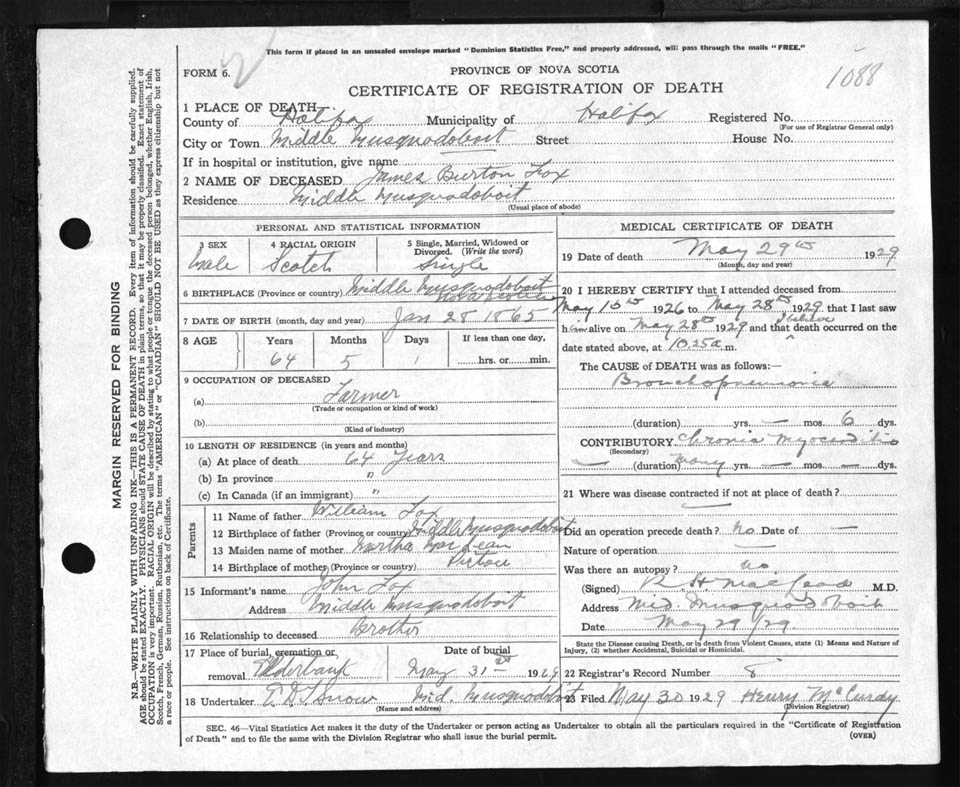 This form if placed in an unsealed envelope marked "Dominion Statistics Free," and properly addressed, will pass through the mails "FREE."
FORM 6. 2
PROVINCE OF NOVA SCOTIA
1088
CERTIFICATE OF REGISTRATION OF DEATH
1 PLACE OF DEATH
County of Halifax Municipality of Halifax Registered No.
(For use of Registrar General only)
City or Town Middle Musquodoboit Street House No.
If in hospital or institution, give name
2 NAME OF DECEASED James Burton Fox
Residence Middle Musquodoboit
(Usual place of abode)
PERSONAL AND STATISTICAL INFORMATION
3 SEX 4 RACIAL ORIGIN 5 Single, Married, Widowed or Divorced. (Write the word)
Male Scotch Single
6 BIRTHPLACE (Province or country) Middle Musquodoboit
Nova Scotia
7 DATE OF BIRTH (month, day and year) Jan 28 1865
8 AGE Years Months Days If less than one day,
64 5 1 hrs. or min.
9 OCCUPATION OF DECEASED
(a) Farmer
(Trade or occupation or kind of work)
(b)
(Kind of industry)
10 LENGTH OF RESIDENCE (in years and months)
(a) At place of death 64 Years
(b) In province "
(c) In Canada (if an immigrant) "
Parents
11 Name of father William Fox
12 Birthplace of father (Province or country) Middle Musquodoboit
13 Maiden name of mother Martha
14 Birthplace of mother (Province or country) Pictou
15 Informant's name John Fox
Address Middle Musquodoboit
16 Relationship to deceased Brother
17 Place of burial, cremation or removal Elderbank
Date of burial May 31st 1929
18 Undertaker Mid. Musquodoboit
(Name and address)
MEDICAL CERTIFICATE OF DEATH
19 Date of death May 29th 1929
(Month, day and year)
20 I HEREBY CERTIFY that I attended deceased from
May 15th 1926 to May 28th 1929 that I last saw
him alive on May 28th 1929 and that I believe death occurred on the
date stated above, at 10.25 a m.
The CAUSE of DEATH was as follows:—
Bronchopneumonia
(duration) yrs. — mos. 6 dys.
CONTRIBUTORY Chronic Myocarditis
(Secondary)
— (duration) Many yrs. — mos. — dys.
21 Where was disease contracted if not at place of death?
—
Did an operation precede death? No Date of —
Nature of operation —
Was there an autopsy? no
(Signed) R. H. MacLeod M.D.
Address Mid. Musquodoboit
Date May 29/29
State the Disease causing Death, or in death from Violent Causes, state (1) Means and Nature of Injury, (2) whether Accidental, Suicidal or Homicidal.
22 Registrar's Record Number 8
23 Filed May 30 1929 Henry McCurdy
(Division Registrar)
SEC. 46—Vital Statistics Act makes it the duty of the Undertaker or person acting as Undertaker to obtain all the particulars required in the "Certificate of Registration
of Death" and to file the same with the Division Registrar who shall issue the burial permit. (OVER)
MARGIN RESERVED FOR BINDING
N.B.—WRITE PLAINLY WITH UNFADING INK—THIS IS A PERMANENT RECORD. Every item of information should be carefully supplied.
AGE should be stated EXACTLY. PHYSICIANS should STATE CAUSE OF DEATH in plain terms, so that it may be properly classified. Exact statement of
OCCUPATION is very important. RACIAL ORIGIN will be described by stating to what people or tongue the deceased person belonged, whether English, Irish,
Scotch, French, German, Russian, Ruthenian, etc. The terms "AMERICAN" or "CANADIAN" SHOULD NOT BE USED as they express citizenship but not
a race or people. See instructions on back of Certificate.